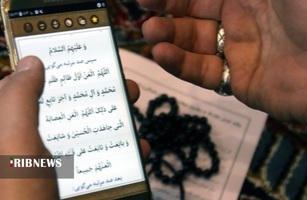 وَ عَلَيْهِمُ السَّلَامُ
سپس صد مرتبه می‌گویی:
اَللّهُمَّ الْعَنْ اَوَّلَ ظالِمٍ ظَلَمَ
حَقَّ مُحَمَّدٍ وَ آلِ مُحَمَّدٍ وَ آخِرَ تابِعٍ
لَهُ عَلى ذلِكَ اَللّهُمَّ الْعَنِ الْعِصابَةَ
الَّتى جاهَدَتِ الْحُسَيْنَ وَ شايَعَتْ
وَ بايَعَتْ وَ تابَعَتْ عَلى قَتْلِهِ اَللّهُمَّ
الْعَنْهُمْ جَميعاً
بعد صد مرتبه می‌گویی:
RIBNEWS